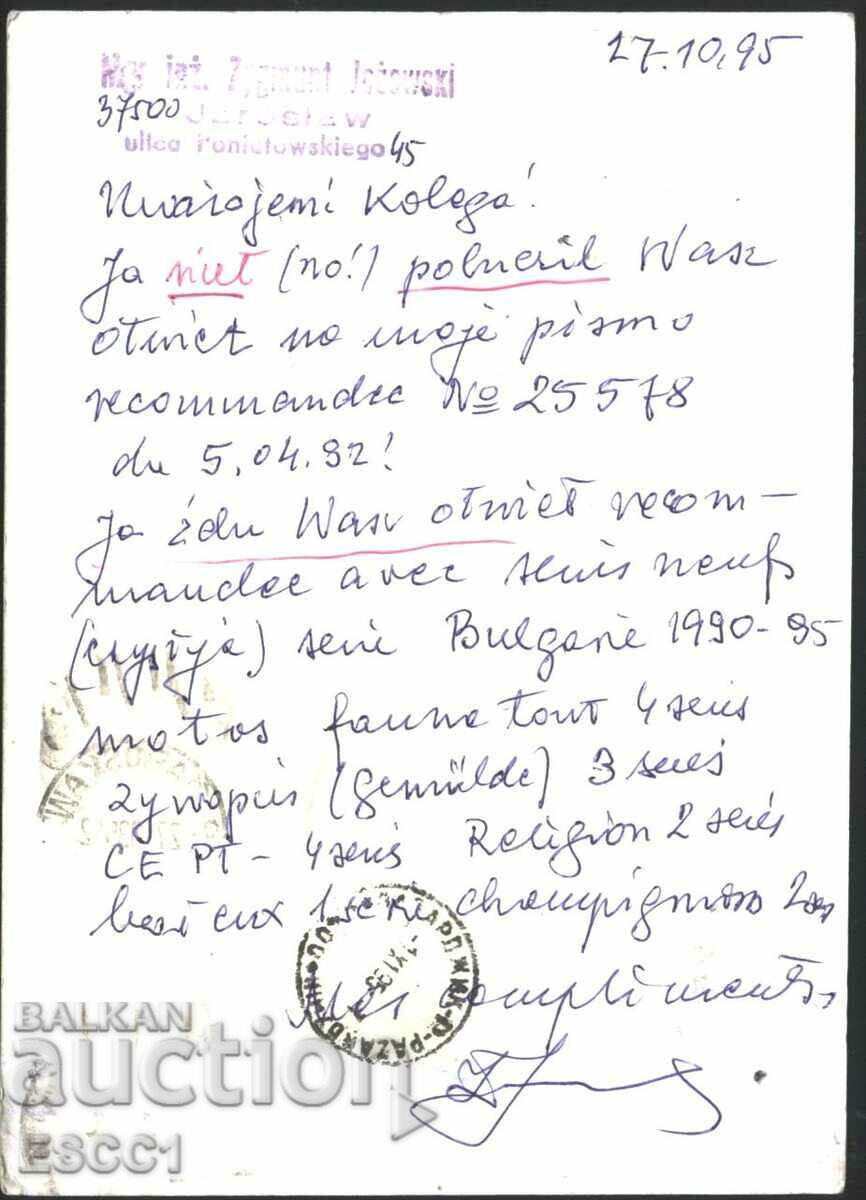 27.10.95
Mgr inż. Zygmunt Jeżowski
37500 Jarosław
ulica Poniatowskiego 45
Uważajemi Kolega!
Ja niet (no!) poluczil Wasz
otwiet na moje pismo
recommandee No 25578
du 5.04.92!
Ja żdu Wasz otwiet recom-
mandee avec series neufs
(czystyja) serie Bulgarie 1990-95
motos fauna tout 4 series
(gemälde) 3 series
CEPT - 4 series Religion 2 series
bateaux 1 serie champignons 2 ser
WARSZAWA
ПАЗАРДЖИК-Ю-PAZARDJIK
-1.XI.95
Mes compliments
BALKAN
auction
ESCC1